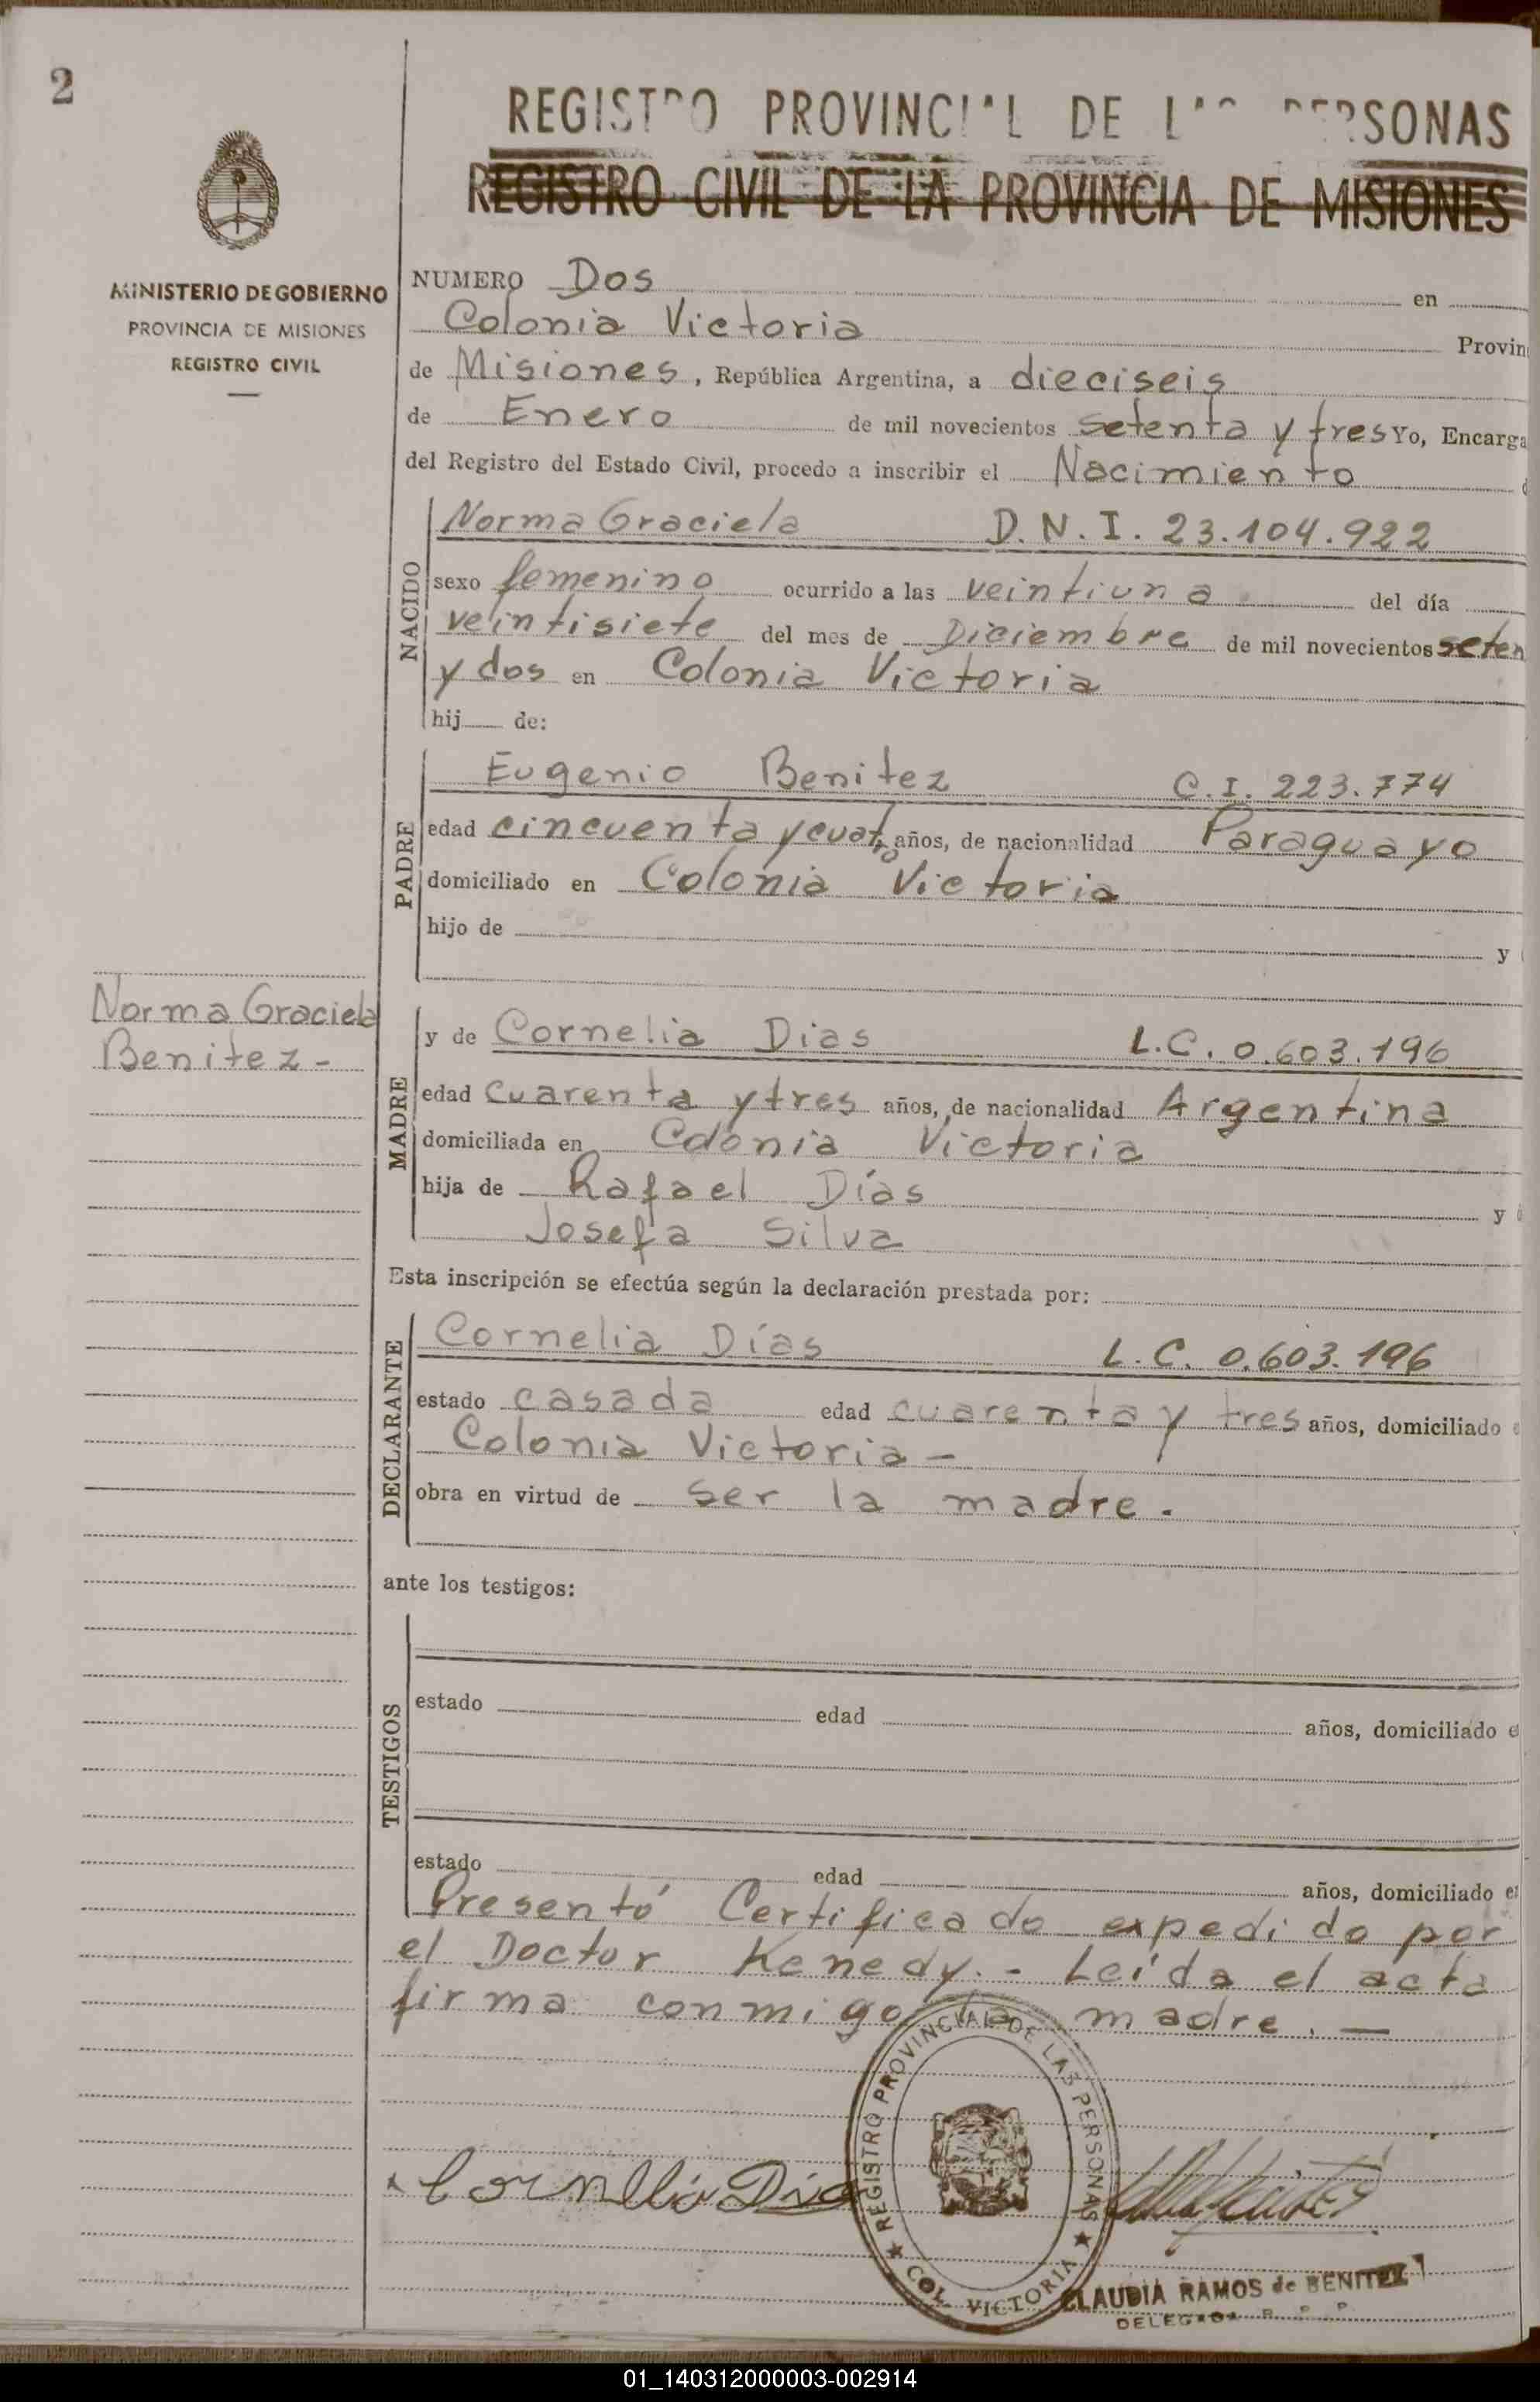 2
REGISTRO PROVINCIAL DE LAS PERSONAS
REGISTRO CIVIL DE LA PROVINCIA DE MISIONES
MINISTERIO DE GOBIERNO
PROVINCIA DE MISIONES
REGISTRO CIVIL
NUMERO Dos en
Colonia Victoria Provin
de Misiones, República Argentina, a dieciseis
de Enero de mil novecientos setenta y tres Yo, Encarga
del Registro del Estado Civil, procedo a inscribir el Nacimiento
NACIDO
Norma Graciela D.N.I. 23.104.922
sexo femenino ocurrido a las veintiuna del día
veintisiete del mes de Diciembre de mil novecientos seten
y dos en Colonia Victoria
hij de:
PADRE
Eugenio Benitez C.I. 223.774
edad cincuenta y cuatro años, de nacionalidad Paraguayo
domiciliado en Colonia Victoria
hijo de y
Norma Graciela
Benitez -
MADRE
y de Cornelia Dias L.C. 0.603.196
edad cuarenta y tres años, de nacionalidad Argentina
domiciliada en Colonia Victoria
hija de Rafael Días y
Josefa Silva
Esta inscripción se efectúa según la declaración prestada por:
DECLARANTE
Cornelia Días L.C. 0.603.196
estado casada edad cuarenta y tres años, domiciliado e
Colonia Victoria -
obra en virtud de ser la madre.
ante los testigos:
TESTIGOS
estado edad años, domiciliado e
estado edad años, domiciliado e
Presentó Certificado expedido por
el Doctor Kenedy. - Leída el acta
firma conmigo la madre. —
Cornelia Dias
REGISTRO PROVINCIAL DE LAS PERSONAS
★ COL. VICTORIA ★
CLAUDIA RAMOS de BENITEZ
DELEGADA R. P. P.
01_140312000003-002914